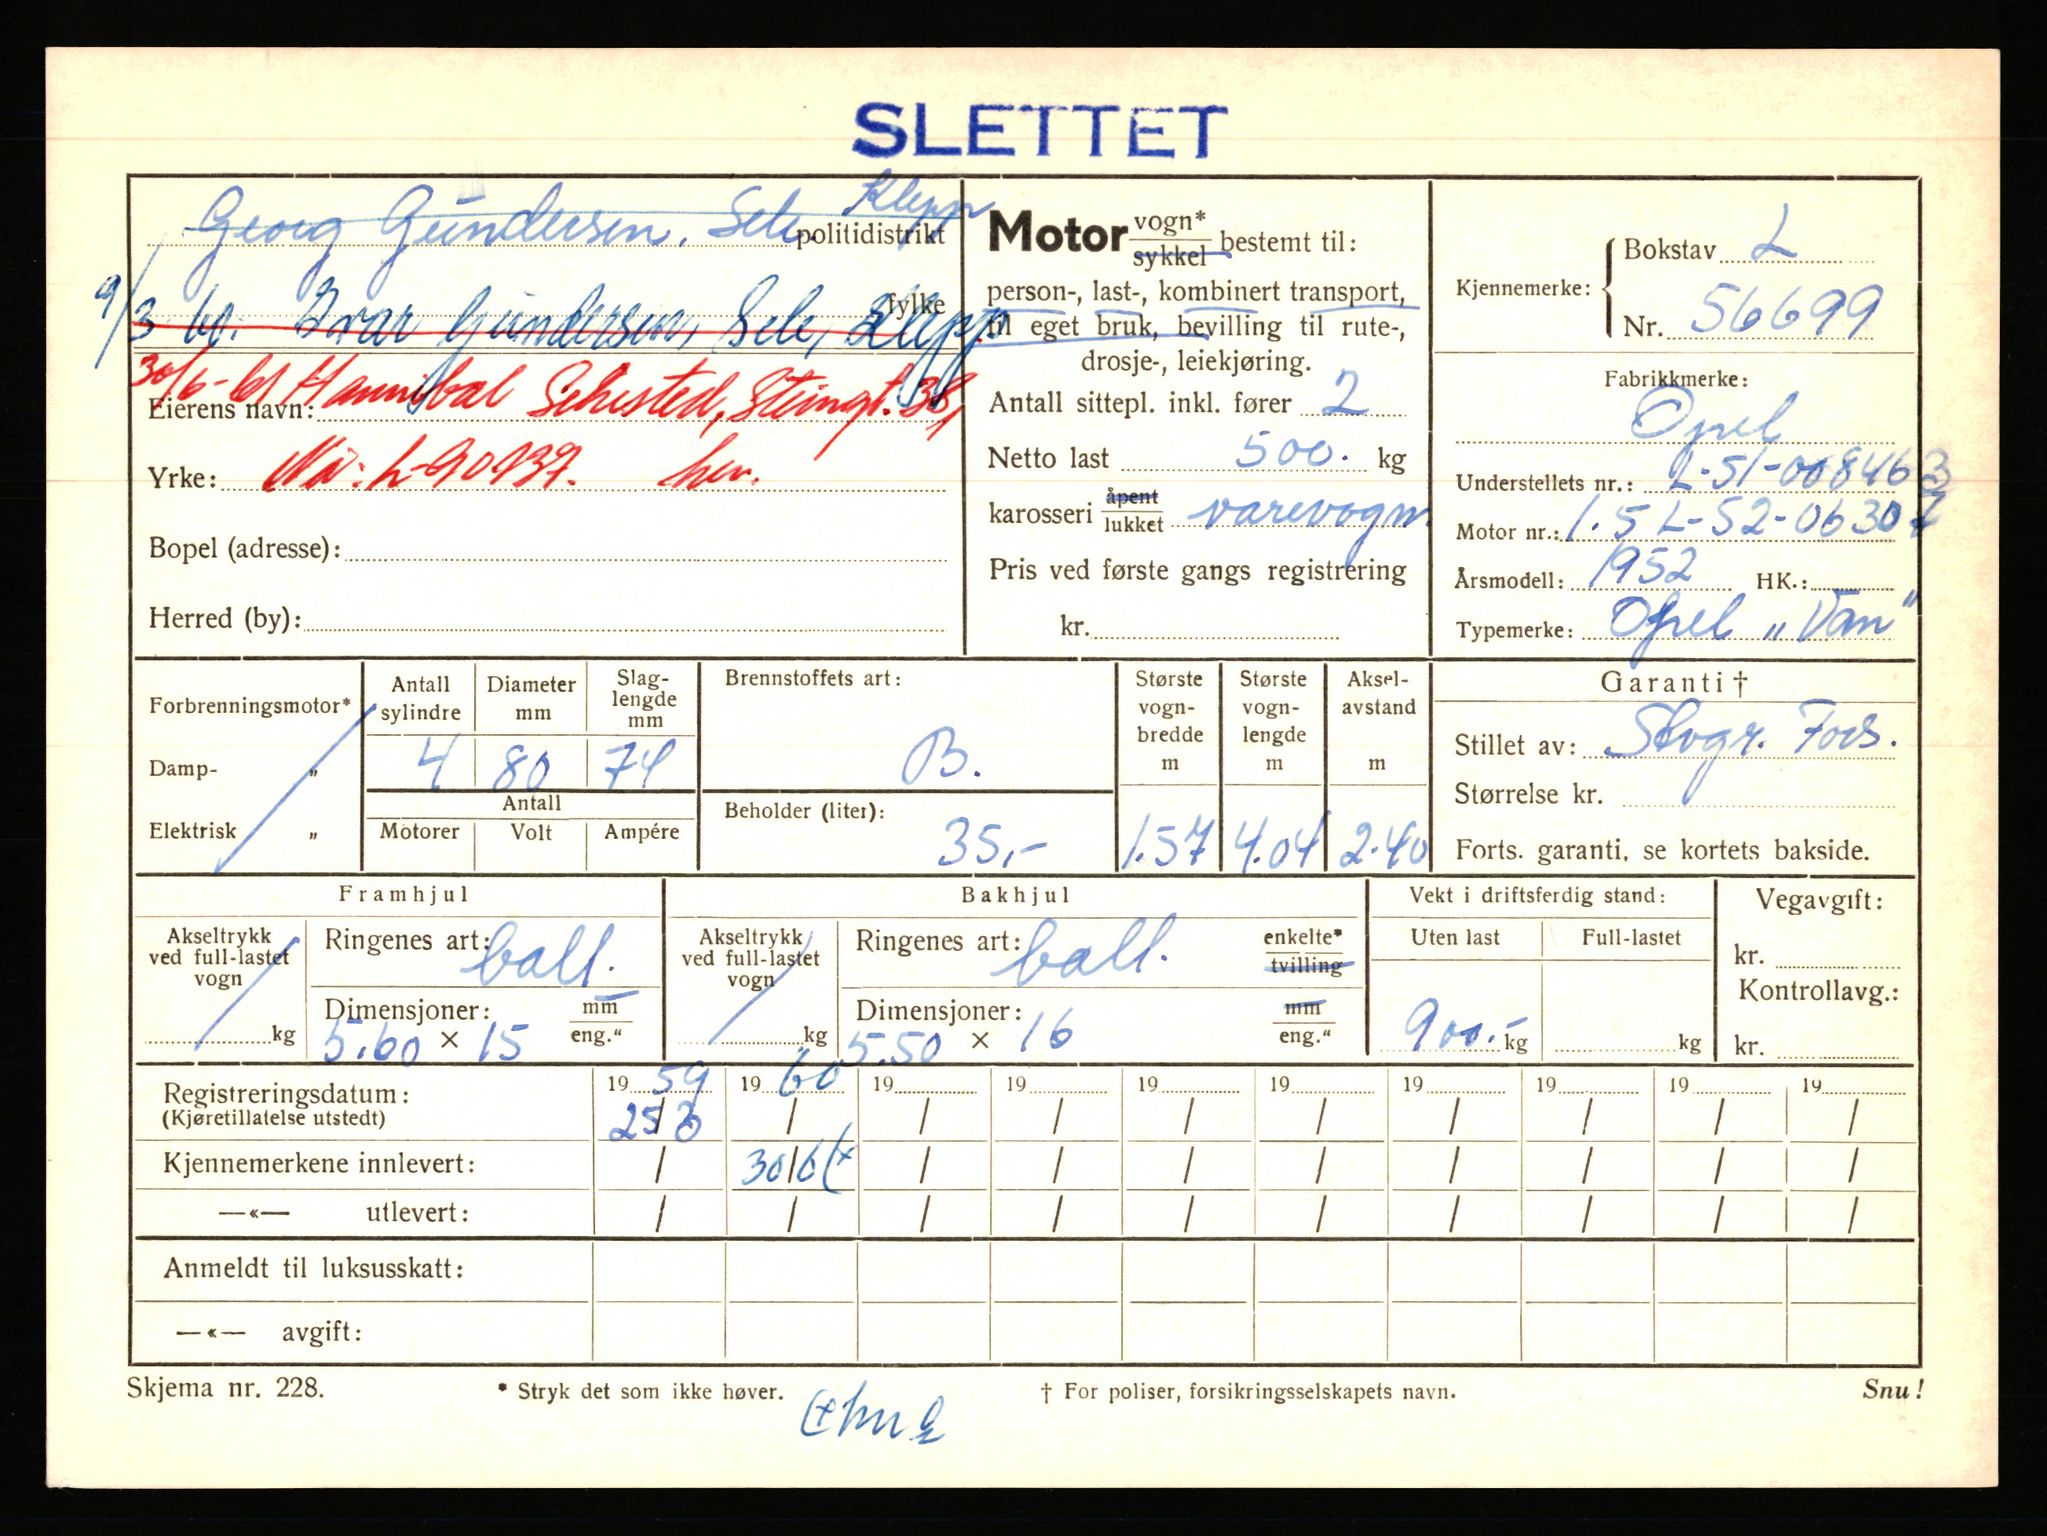 SLETTET
Georg Gundersen, Sele Klepp
politidistrikt
9/3 60. Ivar Gundersen, Sele, Klepp.
fylke
30/6-61 Hannibal Sehested, Steingt. 38,
Eierens navn:
Yrke: Nå: L-90137. her.
Bopel (adresse):
Herred (by):
Motor vogn* sykkel bestemt til:
person-, last-, kombinert transport,
til eget bruk, bevilling til rute-,
drosje-, leiekjøring.
Antall sittepl. inkl. fører 2
Netto last 500. kg
karosseri åpent lukket varevogn.
Pris ved første gangs registrering
kr.
Kjennemerke: Bokstav L
Nr. 56699
Fabrikkmerke:
Opel
Understellets nr.: L-51-008463
Motor nr.: 1.5 L-52-06307
Årsmodell: 1952 HK.:
Typemerke: Opel „Van"
Forbrenningsmotor*
Damp- „
Elektrisk „
Antall sylindre
Diameter mm
Slaglengde mm
4 80 74
Antall
Motorer Volt Ampére
Brennstoffets art:
B.
Beholder (liter):
35,-
Største vognbredde m
1.57
Største vognlengde m
4.04
Akselavstand m
2.40
Garanti †
Stillet av: Stvgr. Fors.
Størrelse kr.
Forts. garanti, se kortets bakside.
Framhjul
Akseltrykk ved full-lastet vogn
kg
Ringenes art: ball.
Dimensjoner: mm eng."
5.60 × 15
Bakhjul
Akseltrykk ved full-lastet vogn
kg
Ringenes art: ball. enkelte* tvilling
Dimensjoner: mm eng."
5.50 × 16
Vekt i driftsferdig stand:
Uten last Full-lastet
900.- kg kg
Vegavgift:
kr.
Kontrollavg.:
kr.
Registreringsdatum: 19 59 19 60 19 19 19 19 19 19 19 19
(Kjøretillatelse utstedt) 25/3 / / / / / / / / /
Kjennemerkene innlevert: / 30/6 (+ / / / / / / / /
—«— utlevert: / / / / / / / / / /
Anmeldt til luksusskatt:
—«— avgift:
Skjema nr. 228. * Stryk det som ikke høver. † For poliser, forsikringsselskapets navn. Snu!